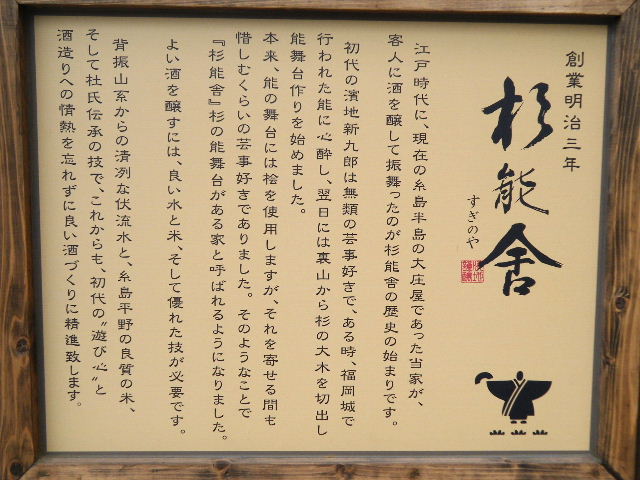 創業明治三年
杉能舎
すぎのや
江戸時代に、現在の糸島半島の大庄屋であった当家が、
客人に酒を醸して振舞ったのが杉能舎の歴史の始まりです。
初代の濱地新九郎は無類の芸事好きで、ある時、福岡城で
行われた能に心酔し、翌日には裏山から杉の大木を切出し
能舞台作りを始めました。
本来、能の舞台には桧を使用しますが、それを寄せる間も
惜しむくらいの芸事好きでありました。そのようなことで
『杉能舎』杉の能舞台がある家と呼ばれるようになりました。
よい酒を醸すには、良い水と米、そして優れた技が必要です。
背振山系からの清冽な伏流水と、糸島平野の良質の米、
そして杜氏伝承の技で、これからも、初代の〝遊び心〟と
酒造りへの情熱を忘れずに良い酒づくりに精進致します。